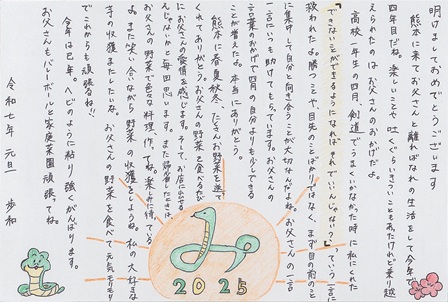 明けましておめでとうございます
熊本に来てお父さんと離ればなれの生活をして今年で
四年目だね。楽しいことや吐くぐらいきついこともあったけれど乗り越
えられたのはお父さんのおかげだよ。
高校一年生の四月、剣道でうまくいかなった時に私にくれた
「できないことができるようになればそれでいいんじゃない？」っていう一言に
救われたよ。勝つことや、目先のことばかりではなく、まず目の前のこと
に集中して自分と向き合うことが大切なんだよね。お父さんの一言
一言にいつも助けてもらっています。お父さんの
言葉のおかげで四月の自分よりも少しできる
ことが増えたよ。本当にありがとう。
熊本に春夏秋冬、たくさんお野菜を送って
くれてありがとう。お父さんの野菜を食べるたび
にお父さんの愛情を感じます。そして、お店に出せる
んじゃないかと毎回思います。また帰省したときは
お父さんの野菜で色々な料理作ってね。楽しみに待っている
よ。また笑い合いながら野菜の収穫をしようね。私の大好きな
芋の収穫またしたいな。お父さんの野菜を食べて元気モリモリ
でこれからも頑張るね!!
今年は巳年。へびのように粘り強くがんばります。
お父さんもバレーボールと家庭菜園頑張ってね。
令和七年 元旦 歩和
2025